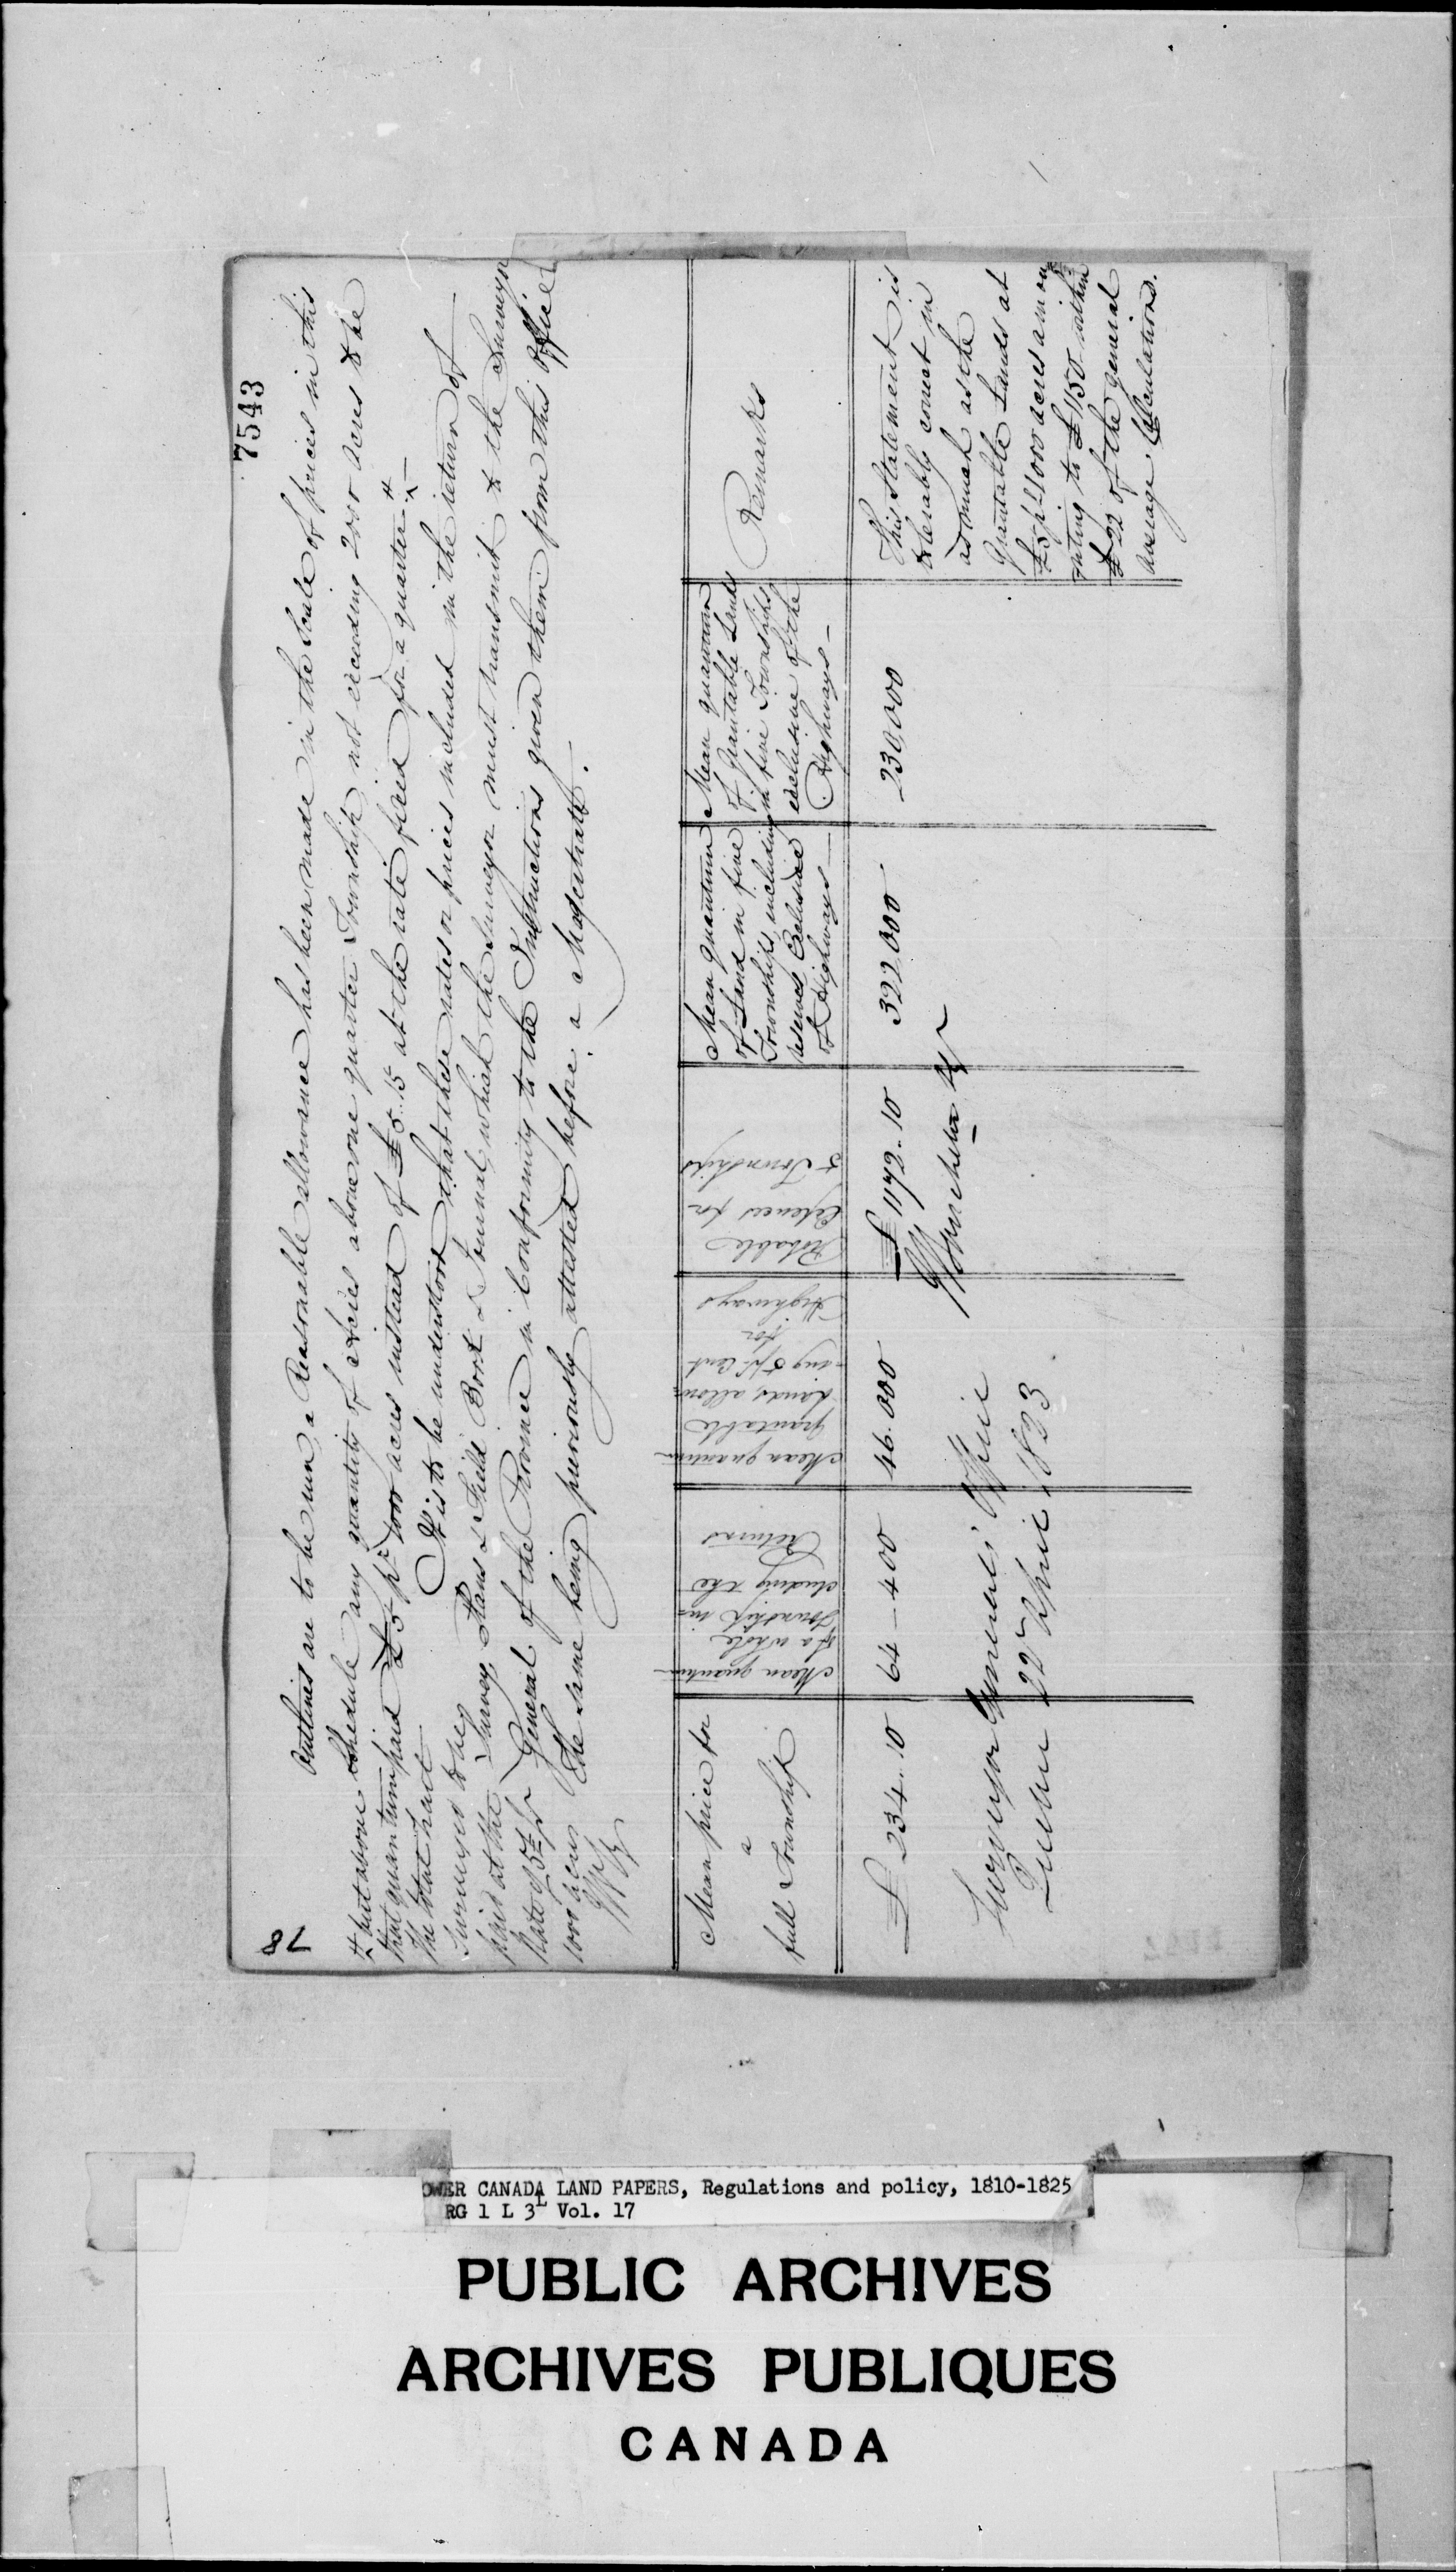 7543
78
outlines are to be run, a Reasonable allowance has been made in the Scale of prices in this
Schedule any quantity of Acres above one quarter Township, not exceeding 2000 acres to be
paid £5 pr 1000 acres instead of £5..15 at the rate fixed for a quarter #
It is to be understood that these rates or prices included in the return of
Survey, Plans & Field Book & Journal, which the Surveyor must transmit to the Surveyor
General of the Province in Conformity to the Instructions given them from this Office
the same being previously attested before a Magistrate.
# but above
that quantum
the total tract
Surveyed to be
paid at the
Rate of £5 pr
1000 acres
Mean price for
a
full Township
Mean quantum
of a whole
Township in-
cluding the
Returns
Mean quantum
grantable
Lands, allow-
ing 5 pr Cent
for
Highways
Probable
Expences for
5 Townships
Mean quantum
of Land in five
Townships, including
reserves Exclusive
of Highways
Mean quantum
of grantable Lands
in five Townships
exclusive of the
Highways
Remarks
£ 234..10
64-400
46.000
£ 1172..10
322,000
230,000
This Statement is
tolerably correct in
as much as the
grantable Lands at
£5 pr 1000 acres amoun
ting to £1150 within
£22 of the general
average Calculations.
Surveyor General's Office
22 April 1823
OWER CANADA LAND PAPERS, Regulations and policy, 1810-1825
RG 1 L 3L Vol. 17
PUBLIC ARCHIVES
ARCHIVES PUBLIQUES
CANADA